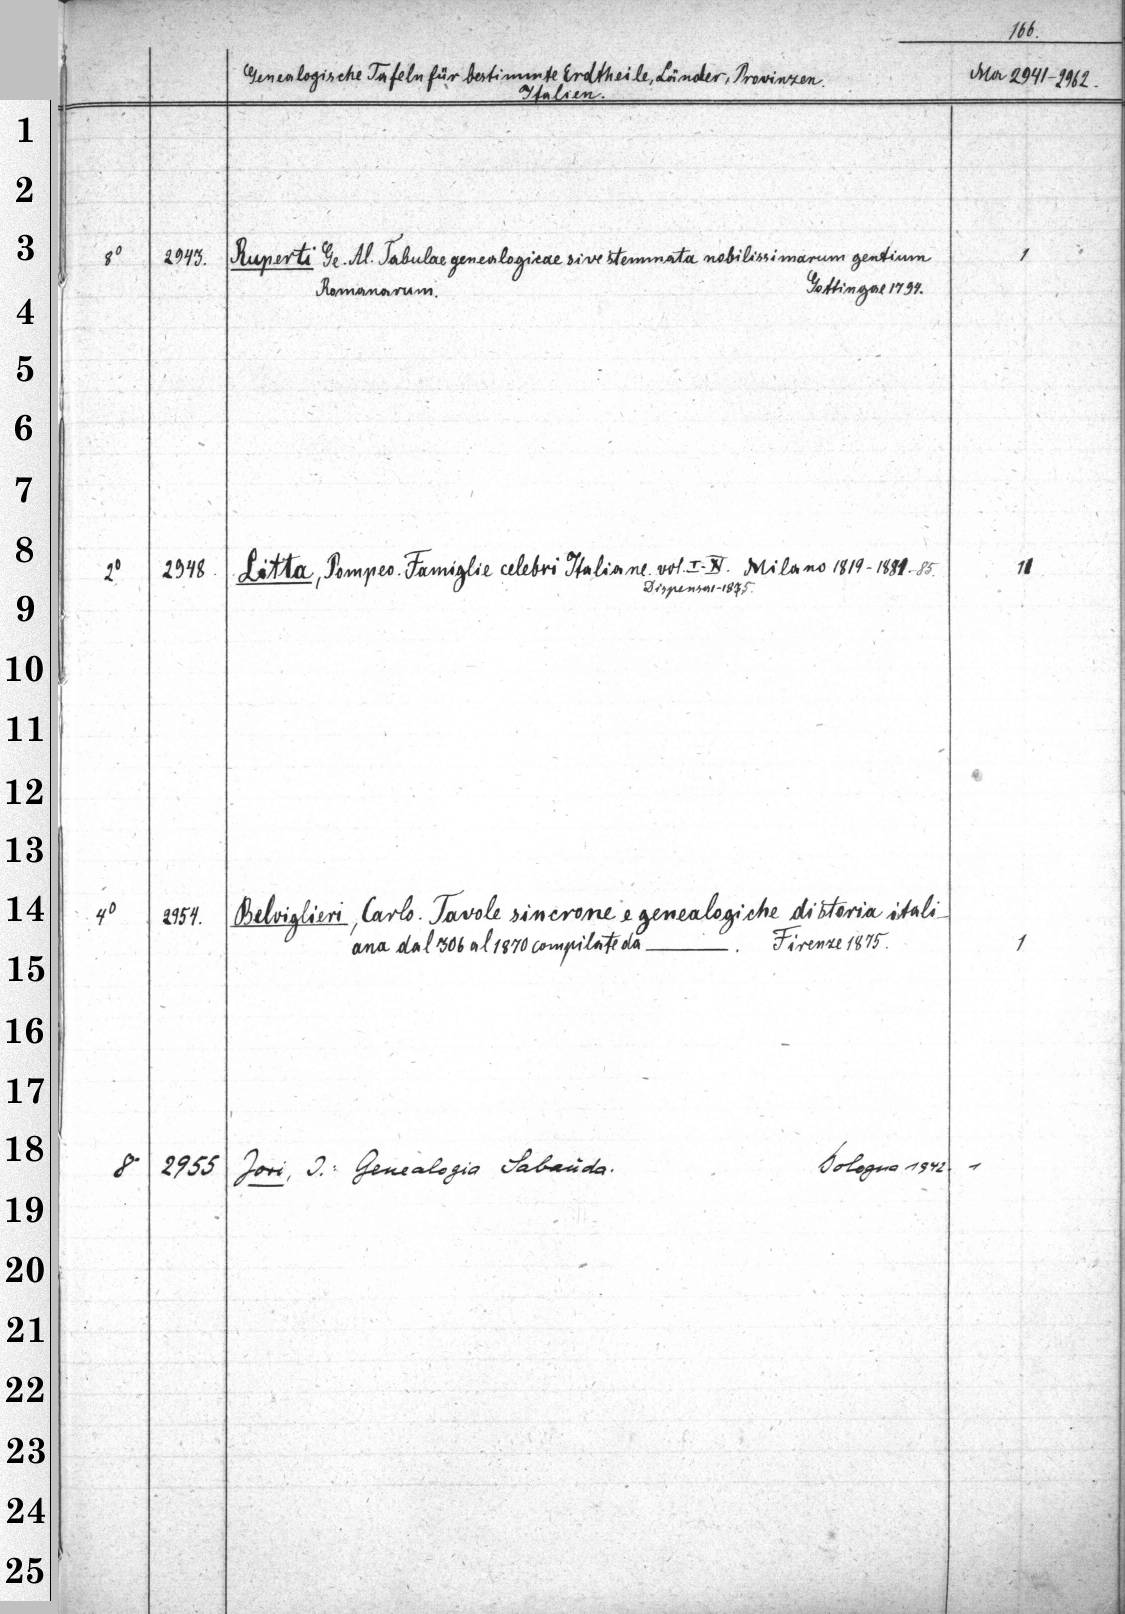 166.
Genealogische Tafeln für bestimmte Erdtheile, Länder, Provinzen. Ma 2941-2962.
Italien.
1
2
3
8° 2943. Ruperti Ge. Al. Tabulae genealogicae sive stemmata nobilissimarum gentium 1
Romanarum. Gottingae 1794.
4
5
6
7
8
2° 2948. Litta, Pompeo. Famiglie celebri Italiane. vol. I-XI. Milano 1819-1881-85. 11
Dispensa 1-1875.
9
10
11
12
13
14
4° 2954. Belviglieri, Carlo. Tavole sincrone e genealogiche di storia itali-
ana dal 306 al 1870 compilate da ———. Firenze 1875. 1
15
16
17
18
8° 2955 Jori, I.: Genealogia Sabauda. Bologna 1942. 1
19
20
21
22
23
24
25